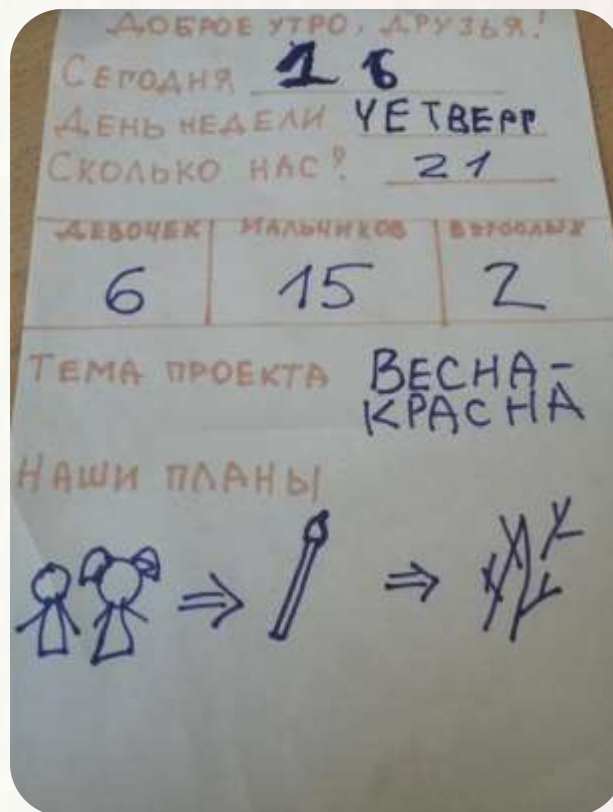 ДОБРОЕ УТРО, ДРУЗЬЯ!
СЕГОДНЯ 16
ДЕНЬ НЕДЕЛИ ЧЕТВЕРГ
СКОЛЬКО НАС? 21
ДЕВОЧЕК МАЛЬЧИКОВ ВЗРОСЛЫХ
6 15 2
ТЕМА ПРОЕКТА ВЕСНА-
КРАСНА
НАШИ ПЛАНЫ